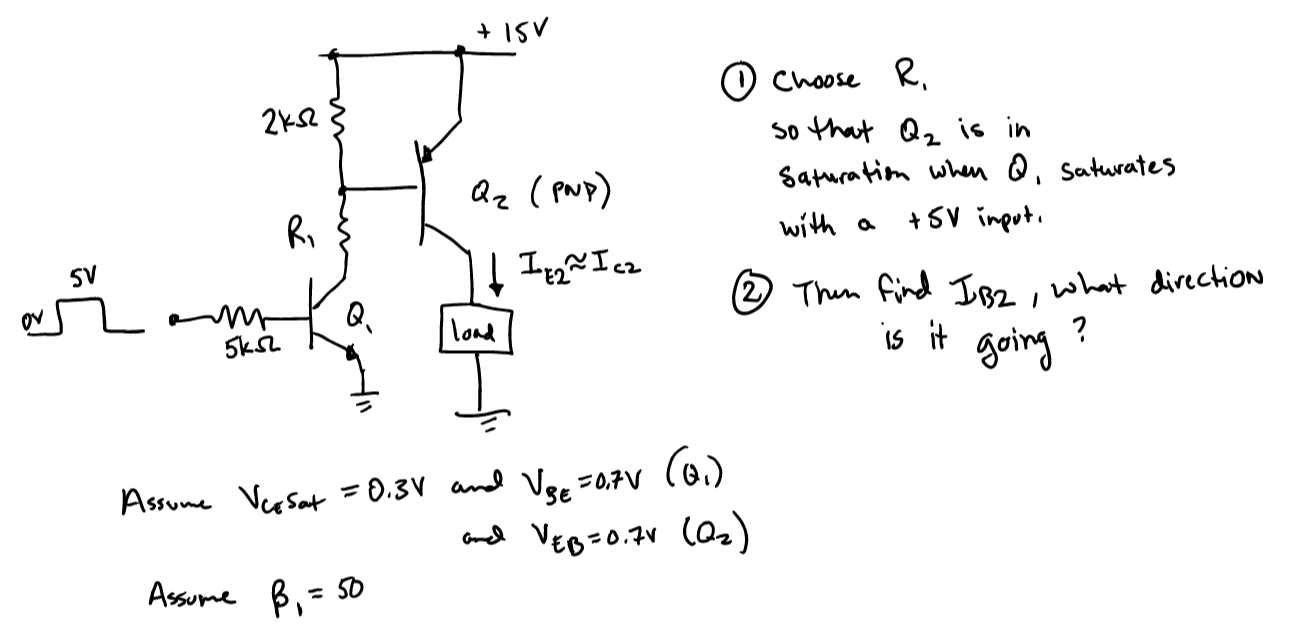 + 15V
2kΩ
Q₂ (PNP)
R₁
I_E2≈I_C2
5V
0V
5kΩ
Q₁
load
① Choose R₁
so that Q₂ is in
Saturation when Q₁ saturates
with a +5V input.
② Then find I_B2, what direction
is it going?
Assume V_CESat = 0.3V and V_BE=0.7V (Q₁)
and V_EB=0.7V (Q₂)
Assume β₁= 50